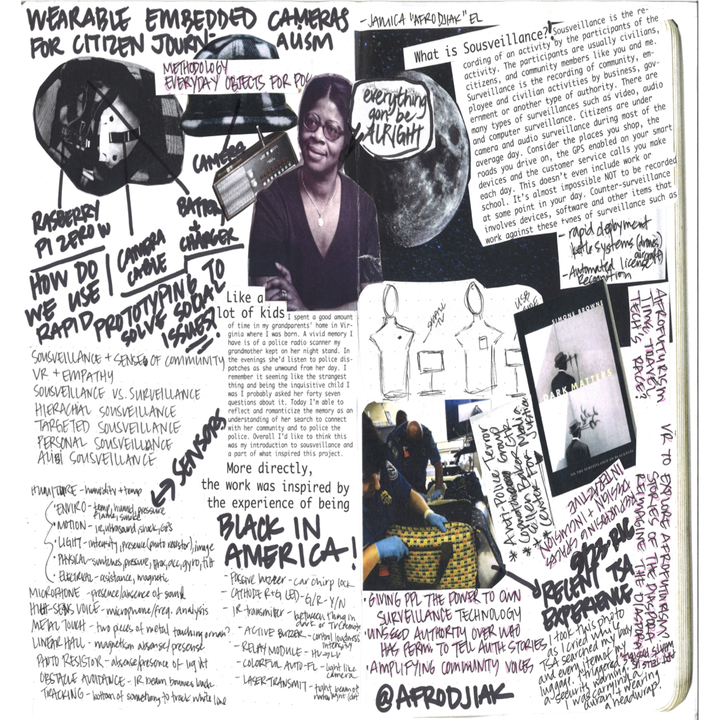 WEARABLE EMBEDDED CAMERAS
FOR CITIZEN JOURN- ALISM
METHODOLOGY
EVERYDAY OBJECTS FOR
CAMERA
BATTERY
+
CHARGER
RASBERRY
PI ZERO W
CAMERA
CABLE
HOW DO
WE USE
RAPID PROTOTYPING TO
SOLVE SOCIAL
ISSUES?
SOUSVEILLANCE + SENSE OF COMMUNITY
VR + EMPATHY
SOUSVEILLANCE VS. SURVEILLANCE
HIERACHAL SOUSVEILLANCE
TARGETED SOUSVEILLANCE
PERSONAL SOUSVEILLANCE
ALIBI SOUSVEILLANCE
SENSORS
HUMITURE - humidity + temp
• ENVIRO - temp, humid, pressure
flame, smoke
• MOTION - IR, ultrasound, shock, GPS
• LIGHT - intensity, presence (photo resistor), image
• PHYSICAL - switches, pressure, pros, acc, gyro, tilt
• ELECTRICAL - resistance, magnetic
MICROPHONE - presence/absence of sound
HIGH-SENS VOICE - microphone/freq. analysis
METAL TOUCH - two pieces of metal touching or nah?
LINEAR HALL - magnetism absense/presense
PHOTO RESISTOR - absense/presence of light
OBSTACLE AVOIDANCE - IR beam bounces back
TRACKING - bottom of something to track white line
everything
gon' be
ALRIGHT
Like a
lot of kids,
I spent a good amount
of time in my grandparents' home in Vir-
ginia where I was born. A vivid memory I
have is of a police radio scanner my
grandmother kept on her night stand. In
the evenings she'd listen to police dis-
patches as she unwound from her day. I
remember it seeming like the strangest
thing and being the inquisitive child I
was I probably asked her forty seven
questions about it. Today I'm able to
reflect and romanticize the memory as an
understanding of her search to connect
with her community and to the police
the police. Overall I'd like to think this
was my introduction to sousveillance and a
part of what inspired this project.
More directly,
the work was inspired by
the experience of being
BLACK IN
AMERICA!
- PASSIVE BUZZER - car chirp lock
- CATHODE R+G LED - G/R - Y/N
- IR transmitter - between things in
dark or TV remote
- ACTIVE BUZZER - control loudness
intensity
- RELAY MODULE - HV → LV
- COLORFUL AUTO-FL - light like
camera
- LASER TRANSMIT -
- JAMICA "AFRODJIAK" EL
What is Sousveillance? Sousveillance is the re-
cording of an activity by the participants of the
activity. The participants are usually civilians,
citizens, and community members like you and me.
Surveillance is the recording of community, em-
ployee and civilian activities by business, gov-
ernment or another type of authority. There are
many types of surveillances such as video, audio
and computer surveillance. Citizens are under
camera and audio surveillance during most of the
average day. Consider the places you shop, the
roads you drive on, the GPS enabled on your smart
devices and the customer service calls you make
each day. This doesn't even include work or
school. It's almost impossible NOT to be recorded
at some point in your day. Counter-surveillance
involves devices, software and other items that
work against these types of surveillance such as
- rapid deployment
kettle systems (drones,
aircraft)
- Automated License
Recognition
SIMONE BROWNE
DARK MATTERS
ON THE SURVEILLANCE OF BLACKNESS
AFROFUTURISM
TIME TRAVEL
TECH & RACE?
VR TO EXPLORE AFROFUTURISM
STORIES OF THE DIASPORA
REIMAGINE THE DIASPORA
INTERACTIVE
* Anti Police Terror
Group
* Committee for
* Ella Baker
Center for Justice
RECENT TSA
EXPERIENCE
I took this photo
as I cried while
TSA searched my body
and every item of my
luggage. I triggered
a security warning.
I was carrying a
Quran + wearing
a headwrap!
• GIVING PPL THE POWER TO OWN
SURVEILLANCE TECHNOLOGY
• UNSEED AUTHORITY OVER WHO
HAS PERM TO TELL AUTH STORIES
• AMPLIFYING COMMUNITY VOICES
@AFRODJIAK